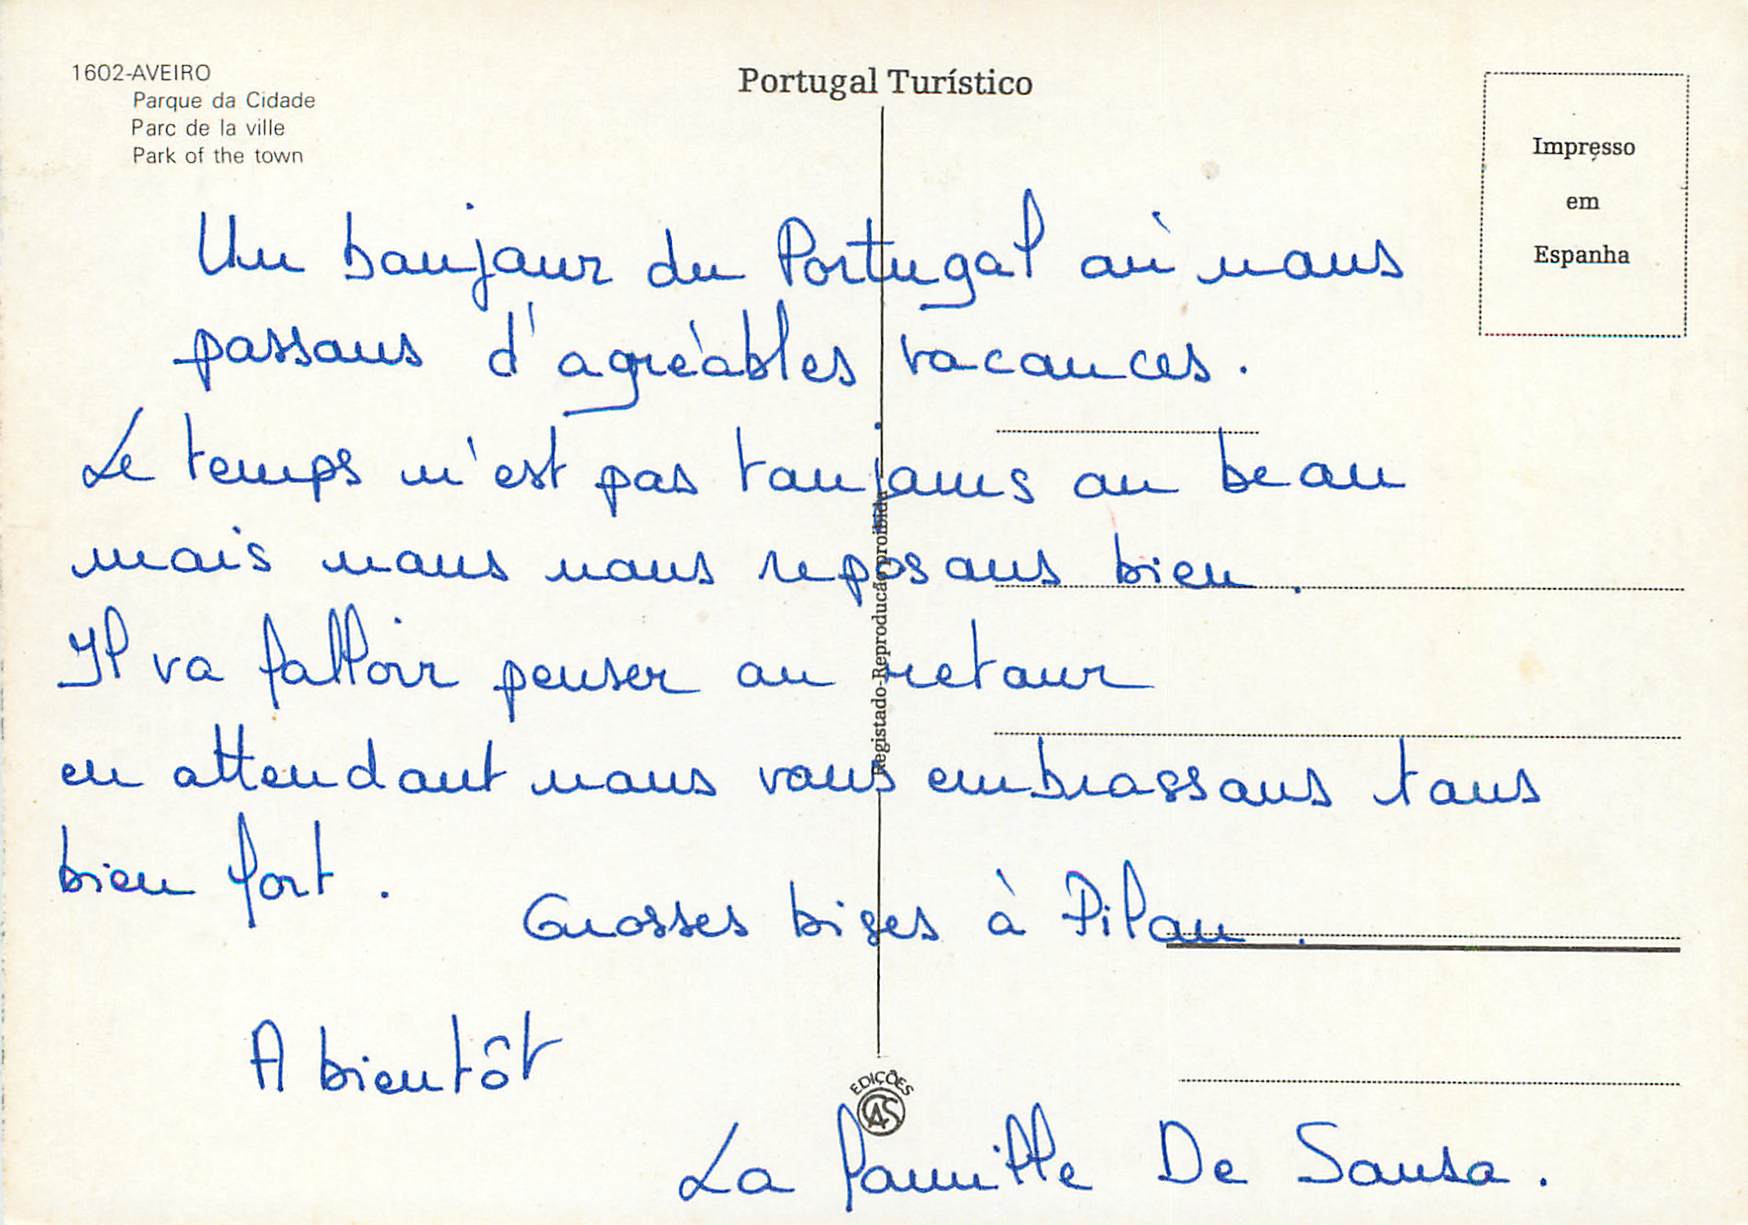 1602-AVEIRO
Parque da Cidade
Parc de la ville
Park of the town
Portugal Turístico
Impresso
em
Espanha
Un bonjour du Portugal où nous
passons d'agréables vacances.
Le temps n'est pas toujours au beau
mais nous nous reposons bien.
Il va falloir penser au retour
en attendant nous vous embrassons tous
bien fort.
Grosses bises à Pilou.
A bientôt
La famille De Sousa.
Registado-Reproducão proibida
EDIÇÕES